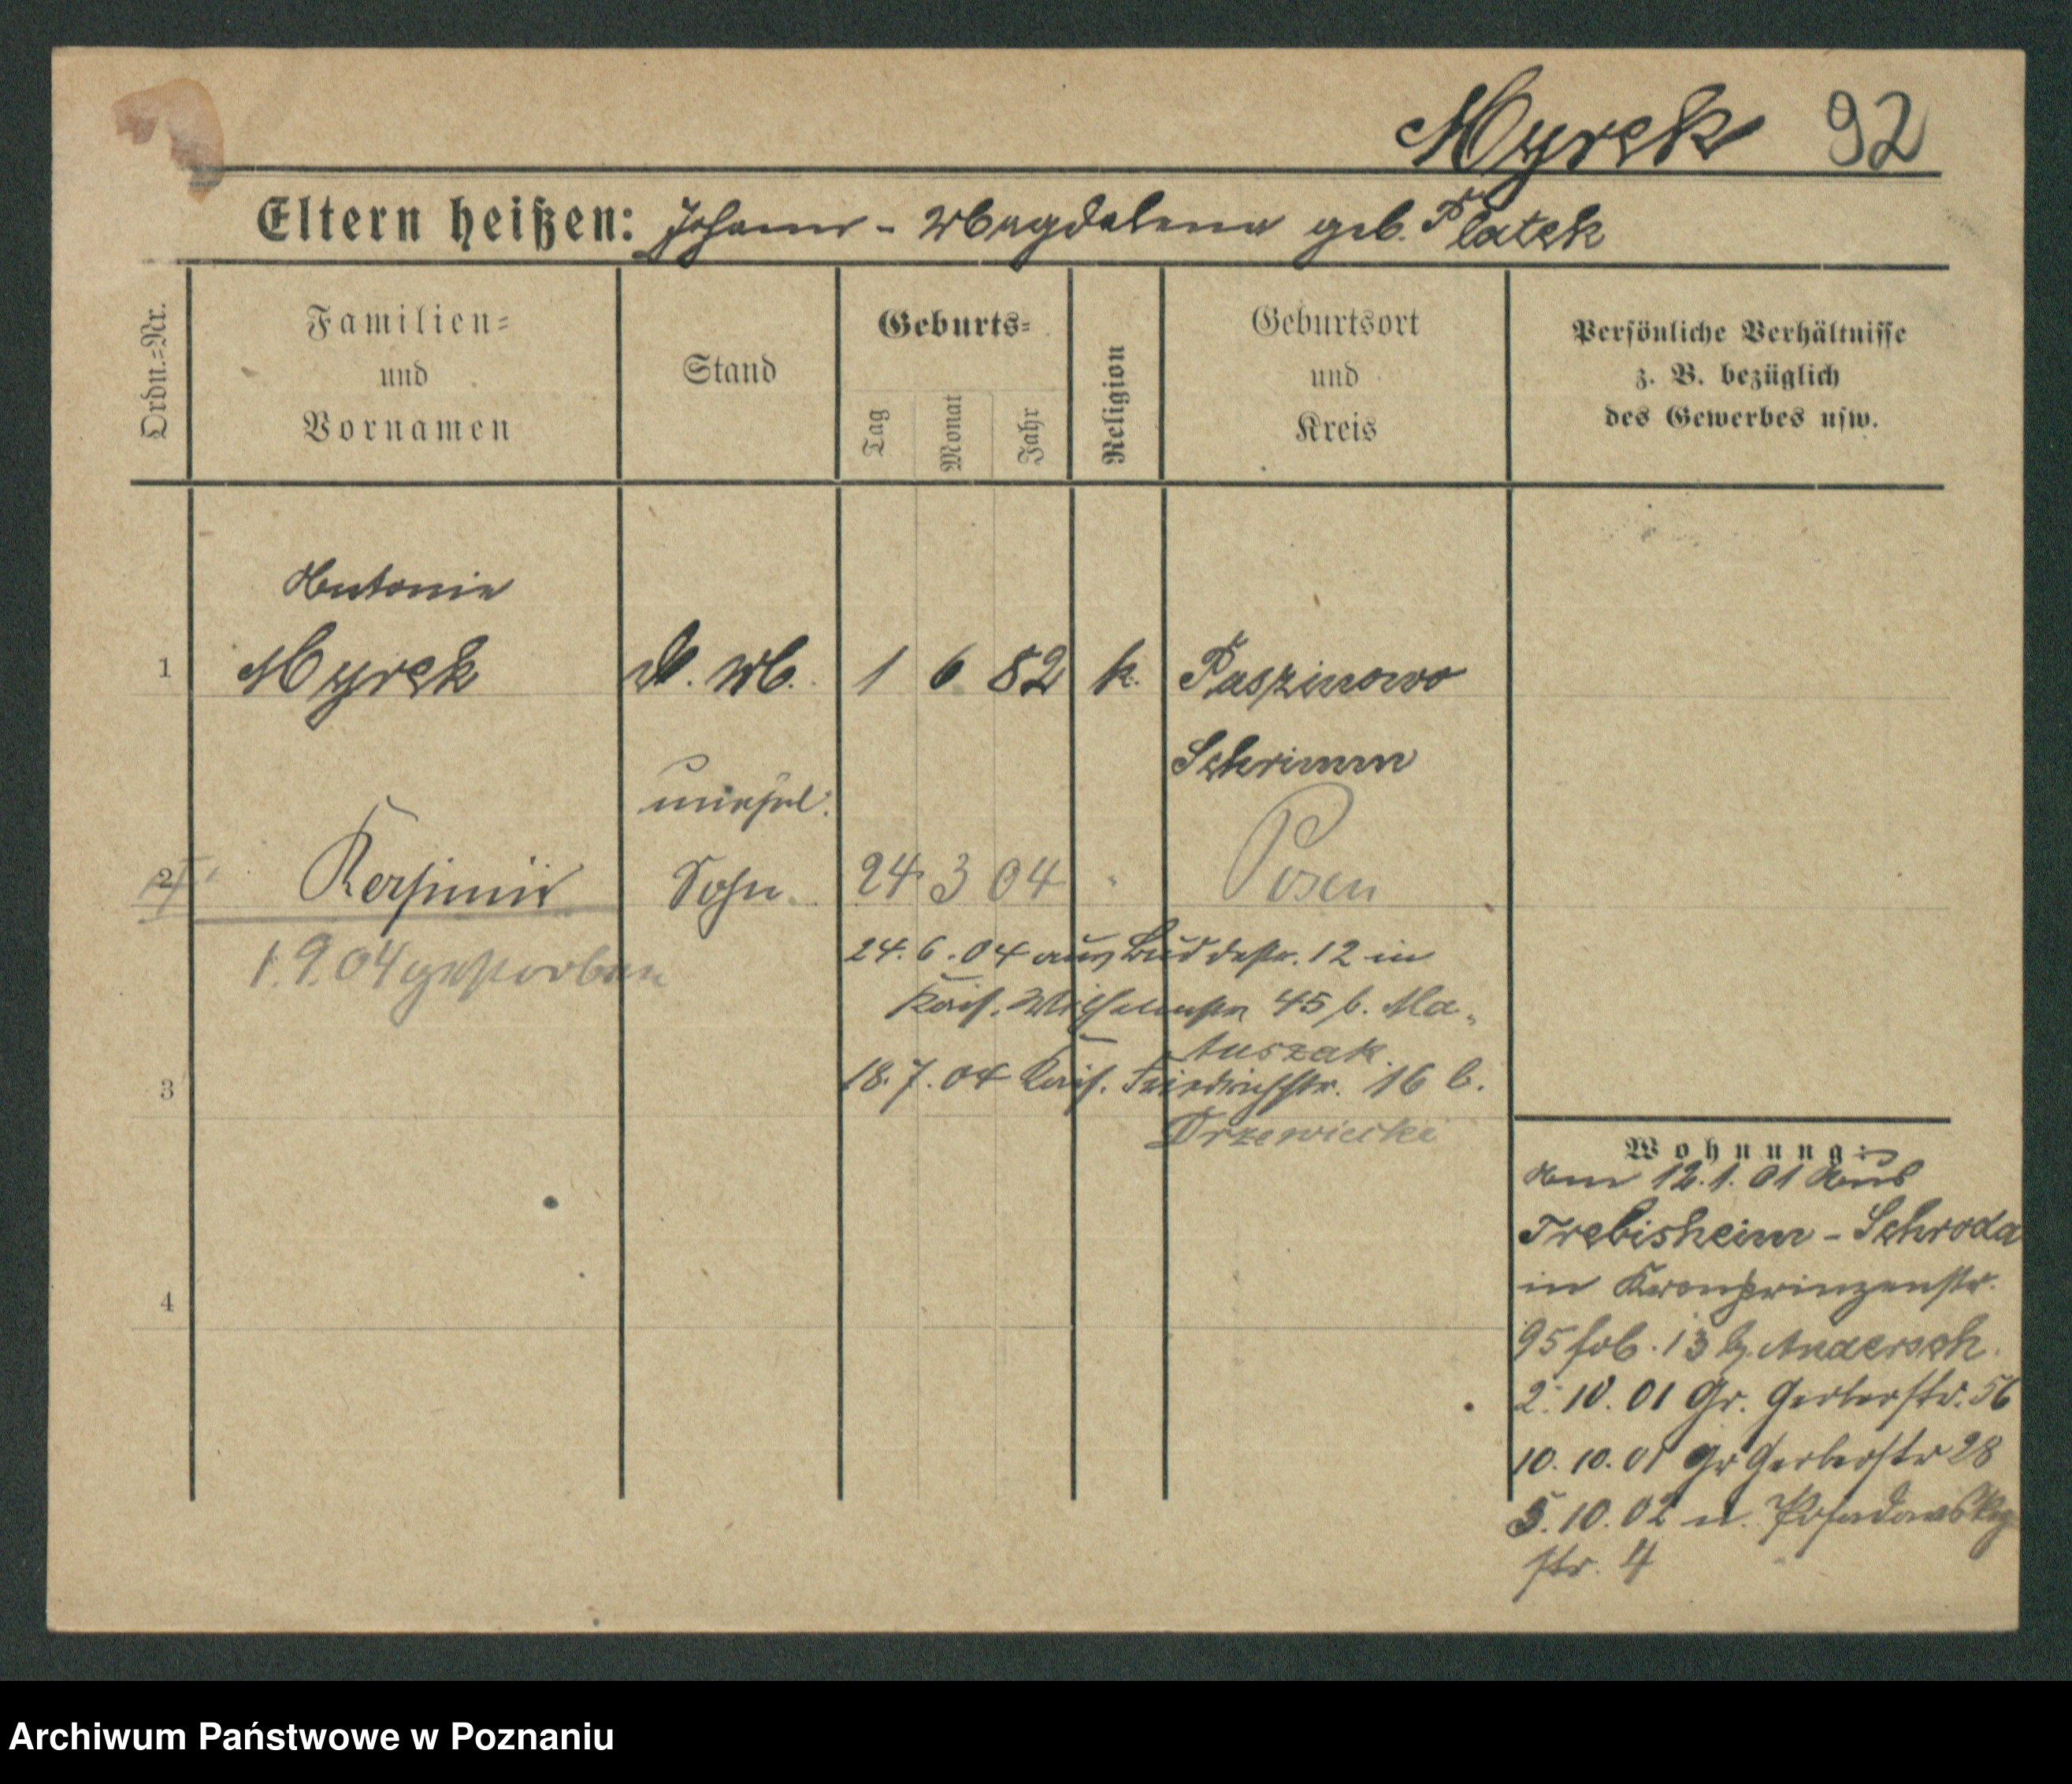 Myrek 92
Eltern heißen: Johann - Magdalena geb. Platek
Ordn.=Nr.
Familien=
und
Vornamen
Stand
Geburts=
Tag
Monat
Jahr
Religion
Geburtsort
und
Kreis
Persönliche Verhältnisse
z. B. bezüglich
des Gewerbes usw.
Antonie
1 Myrek D. M. 1 6 82 k. Paszinowo
Schrimm
unehel.
2 Kasimir Sohn. 24 3 04 " Posen
1.9.04 gestorben
24.6.04 aus Buddestr. 12 in
Kais. Wilhelmstr 45 b. Ma-
tuszak
3
18.7.04 Kais. Friedrichstr. 16 b.
Drzewiecki
4
Wohnung:
Am 12.1.01 Aus
Trebisheim - Schroda
in Kronprinzenstr.
95 b. Andersch.
2.10.01 Gr. Gerberstr. 56
10.10.01 Gr Gerberstr 28
5.10.02 n. Posadowsky
str. 4
Archiwum Państwowe w Poznaniu